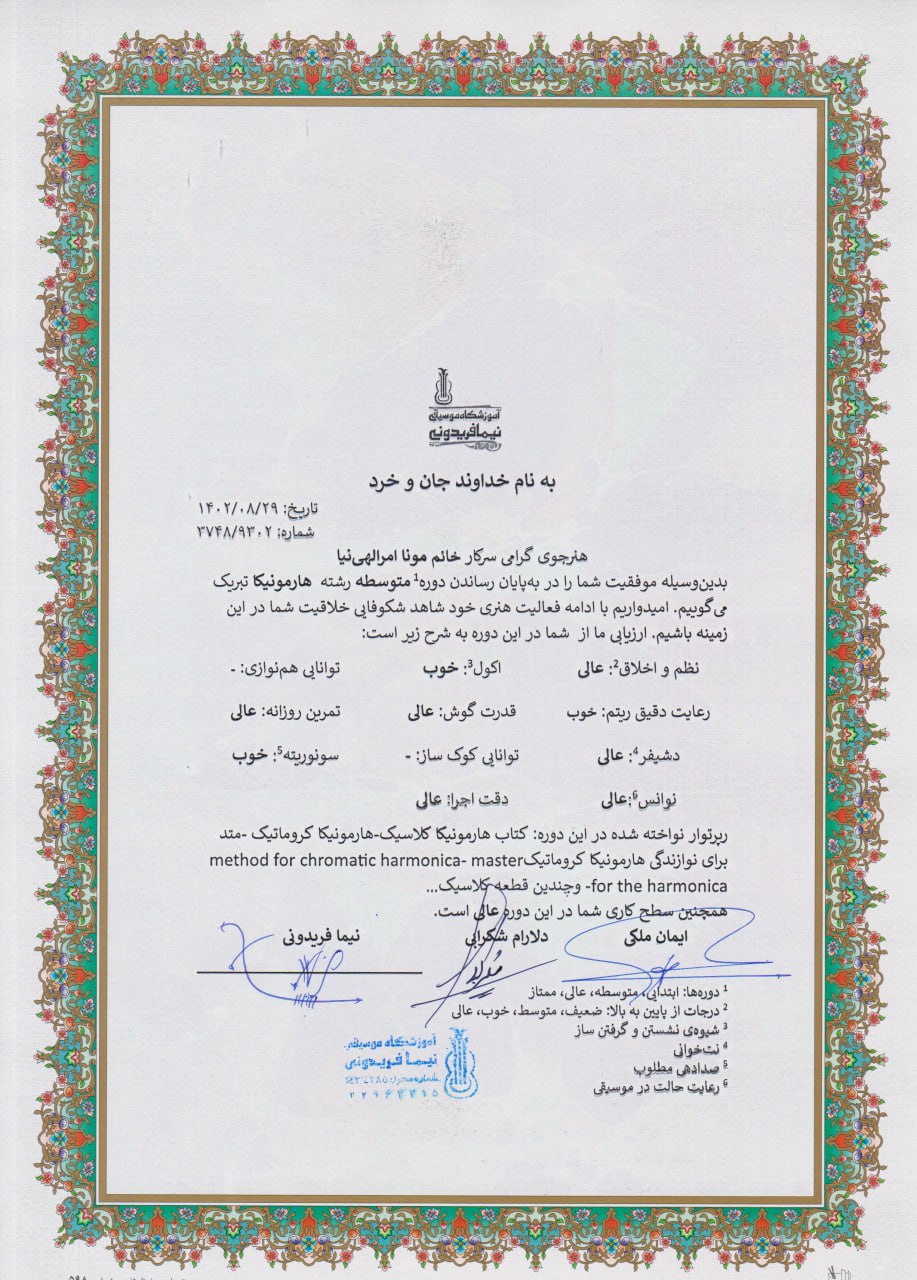 آموزشگاه موسیقی
نیما فریدونی
به نام خداوند جان و خرد
تاریخ: ۱۴۰۲/۰۸/۲۹
شماره: ۳۷۴۸/۹۳۰۲
هنرجوی گرامی سرکار خانم مونا امرالهی‌نیا
بدین‌وسیله موفقیت شما را در به‌پایان رساندن دوره¹ متوسطه رشته هارمونیکا تبریک
می‌گوییم. امیدواریم با ادامه فعالیت هنری خود شاهد شکوفایی خلاقیت شما در این
زمینه باشیم. ارزیابی ما از شما در این دوره به شرح زیر است:
نظم و اخلاق²: عالی اکول³: خوب توانایی هم‌نوازی: -
رعایت دقیق ریتم: خوب قدرت گوش: عالی تمرین روزانه: عالی
دشیفر⁴: عالی توانایی کوک ساز: - سونوریته⁵: خوب
نوانس⁶:عالی دقت اجرا: عالی
رپرتوار نواخته شده در این دوره: کتاب هارمونیکا کلاسیک-هارمونیکا کروماتیک -متد
برای نوازندگی هارمونیکا کروماتیکmethod for chromatic harmonica- master
for the harmonica- وچندین قطعه کلاسیک...
همچنین سطح کاری شما در این دوره عالی است.
ایمان ملکی دلارام شکرابی نیما فریدونی
¹ دوره‌ها: ابتدایی، متوسطه، عالی، ممتاز
² درجات از پایین به بالا: ضعیف، متوسط، خوب، عالی
³ شیوه‌ی نشستن و گرفتن ساز
⁴ نت‌خوانی
⁵ صدادهی مطلوب
⁶ رعایت حالت در موسیقی
آموزشگاه موسیقی
نیما فریدونی